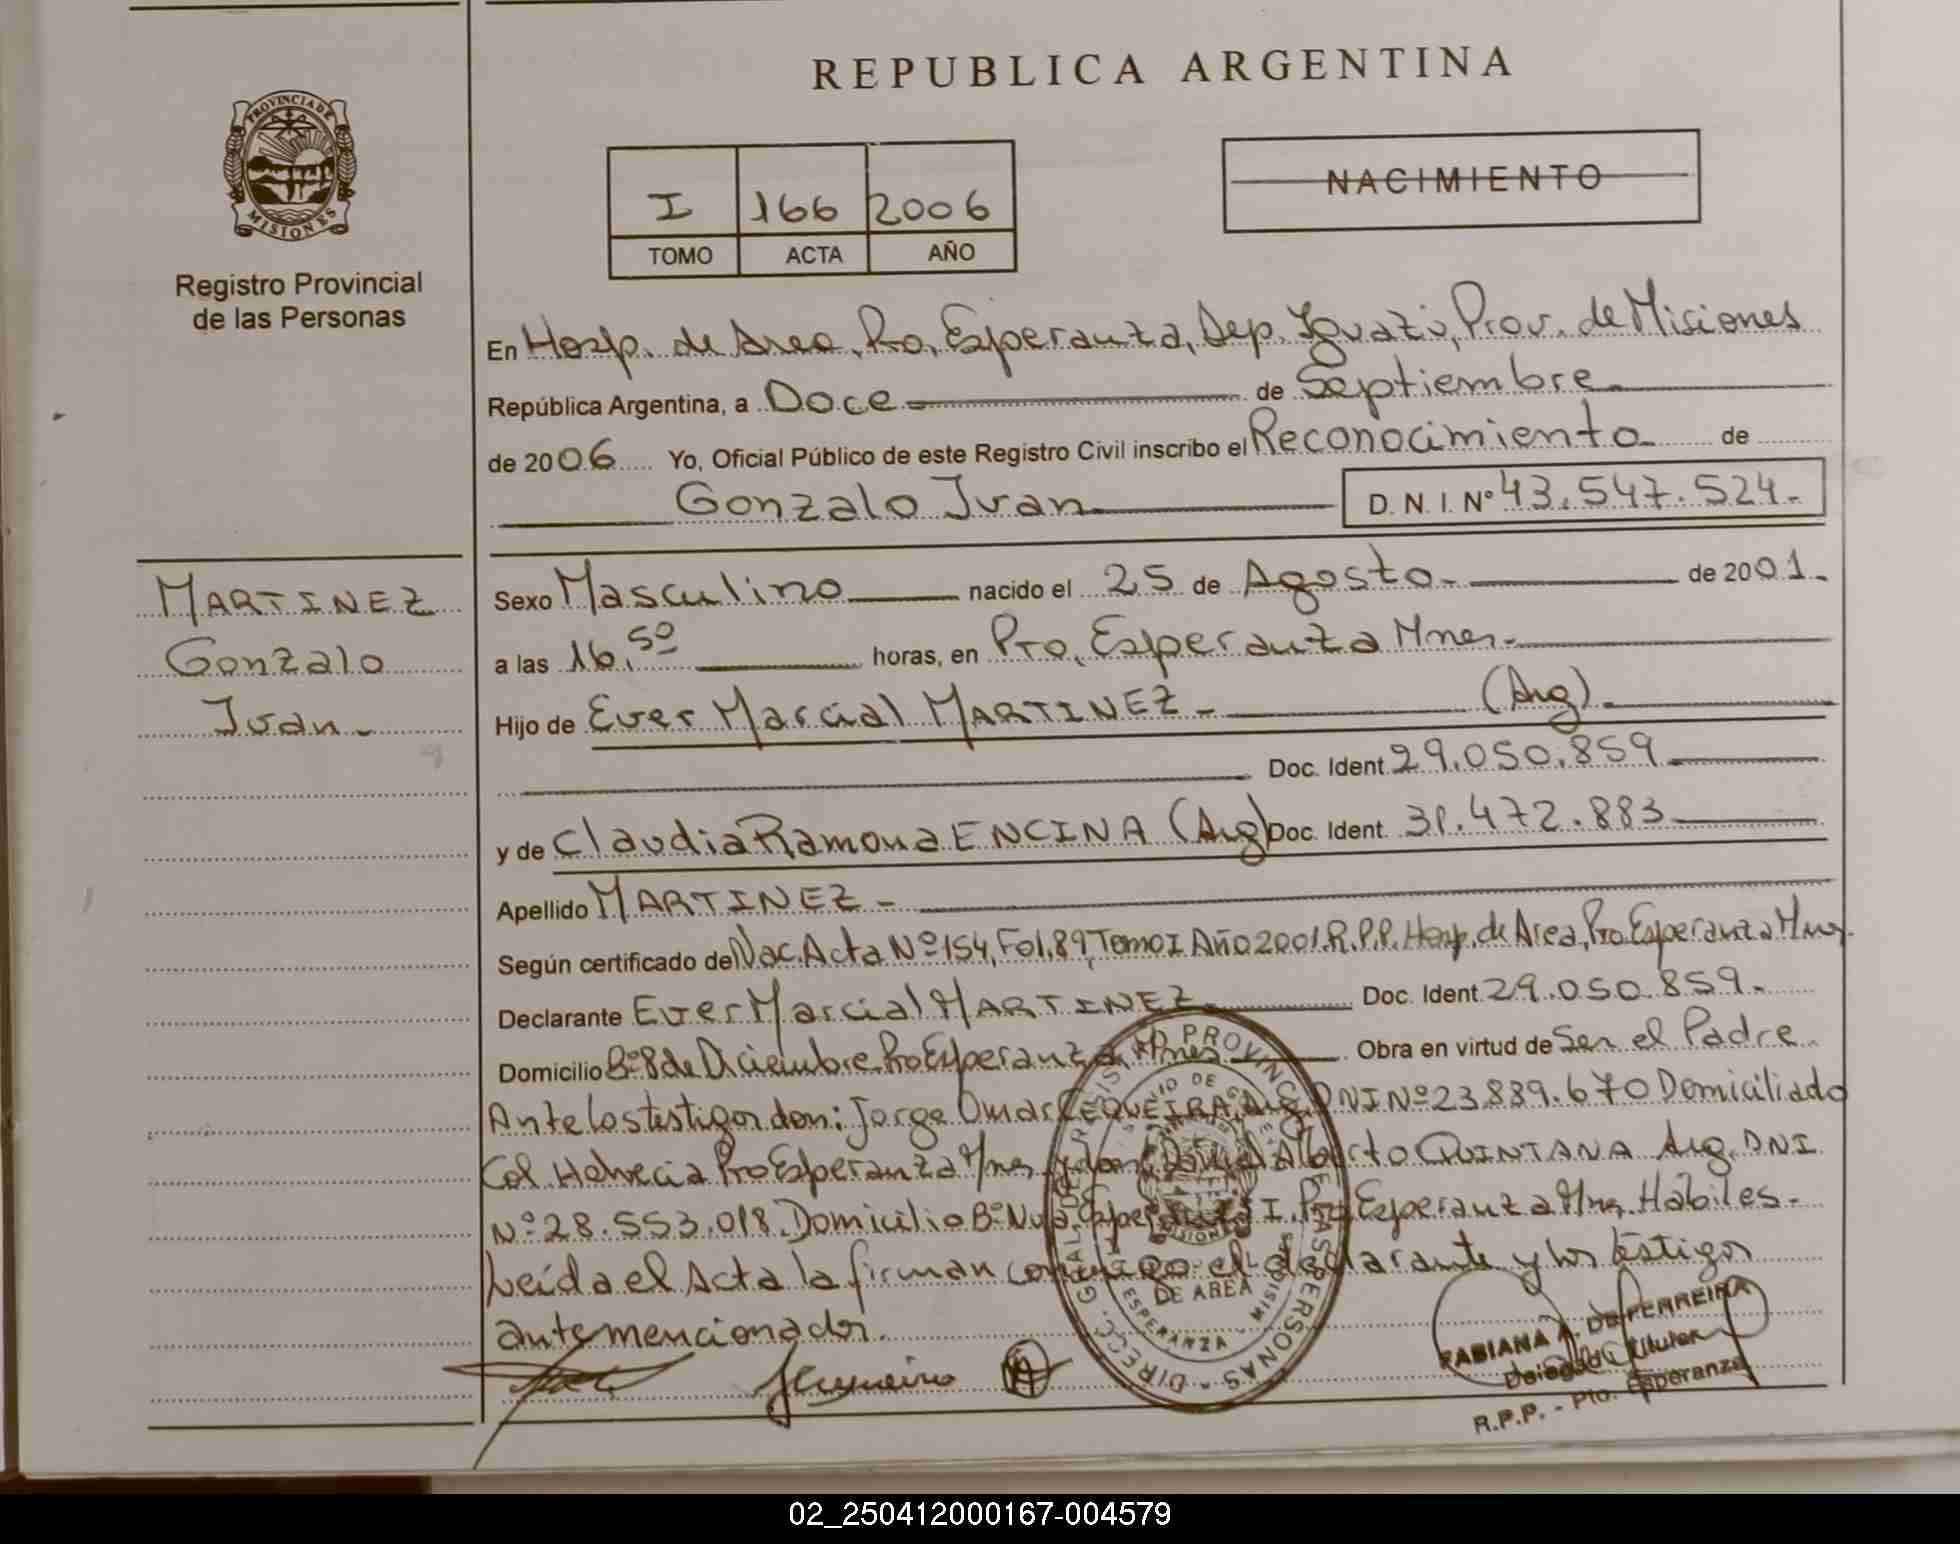 REPUBLICA ARGENTINA
PROVINCIA DE MISIONES
Registro Provincial
de las Personas
I 166 2006
TOMO ACTA AÑO
NACIMIENTO
En Hosp. de Area, Pto, Esperanza, Dep. Iguazú, Prov. de Misiones
República Argentina, a Doce de Septiembre
de 2006 Yo, Oficial Público de este Registro Civil inscribo el Reconocimiento de
Gonzalo Ivan D. N. I. Nº 43.547.524.-
MARTINEZ
Gonzalo
Ivan.-
Sexo Masculino nacido el 25 de Agosto.- de 2001.-
a las 16,50 horas, en Pto, Esperanza Mnes.-
Hijo de Ever Marcial MARTINEZ - (Arg).
Doc. Ident. 29.050.859
y de Claudia Ramona ENCINA (Arg) Doc. Ident. 31.472.883
Apellido MARTINEZ -
Según certificado de Nac. Acta Nº 154, Fol. 89, Tomo I Año 2001. R.P.P. Hosp. de Area, Pto Esperanza Mnes.
Declarante Ever Marcial MARTINEZ Doc. Ident. 29.050.859.-
Domicilio Bº 8 de Diciembre. Pto Esperanza Mnes Obra en virtud de Ser el Padre
Ante los testigos don: Jorge Omar CEQUEIRA, Arg, DNI Nº 23.889.670 Domiciliado
Col. Helvecia Pto Esperanza Mnes y don: Alberto QUINTANA Arg. DNI
Nº 28.553.018. Domicilio Bº Nva. Esperanza I. Pto, Esperanza Mnes, Habiles.-
Leída el Acta la firman conmigo el declarante y los testigos
antemencionados.
DE AREA
ESPERANZA - MISIONES
FABIANA A. DE FERREIRA
Delegado Titular
R.P.P. - Pto. Esperanza
02_250412000167-004579